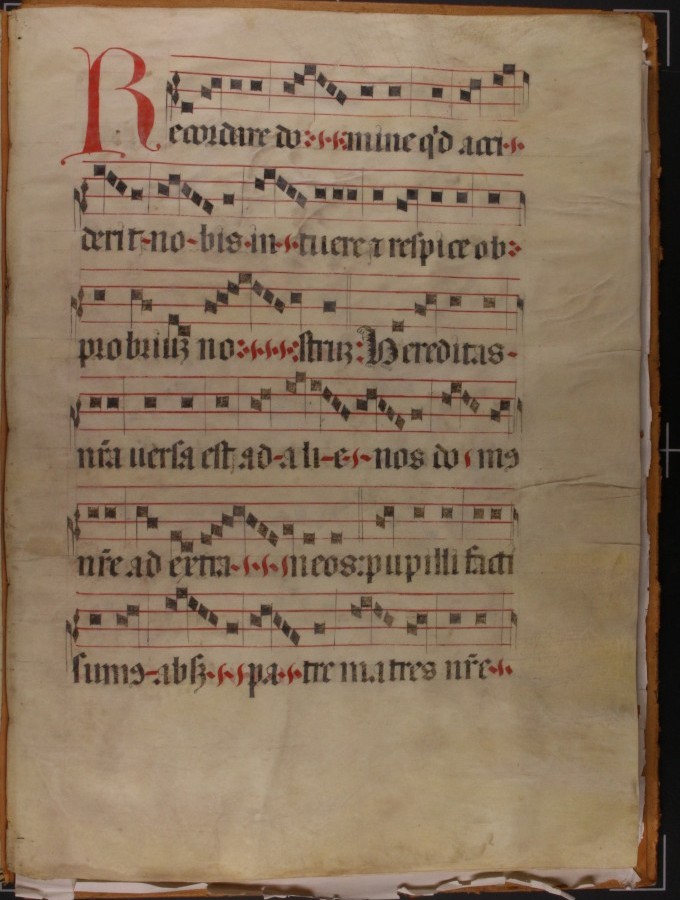 Recordare domine qd acci
derit nobis intuere ⁊ respice ob
probriuꝫ nostruꝫ: Hereditas
nr̄a uersa est ad alienos domꝰ
nr̄e ad extraneos: pupilli facti
sumꝰ absꝫ patre matres nr̄e